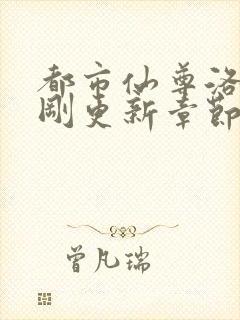 都市仙尊洛
刚更新章节
曾凡瑞